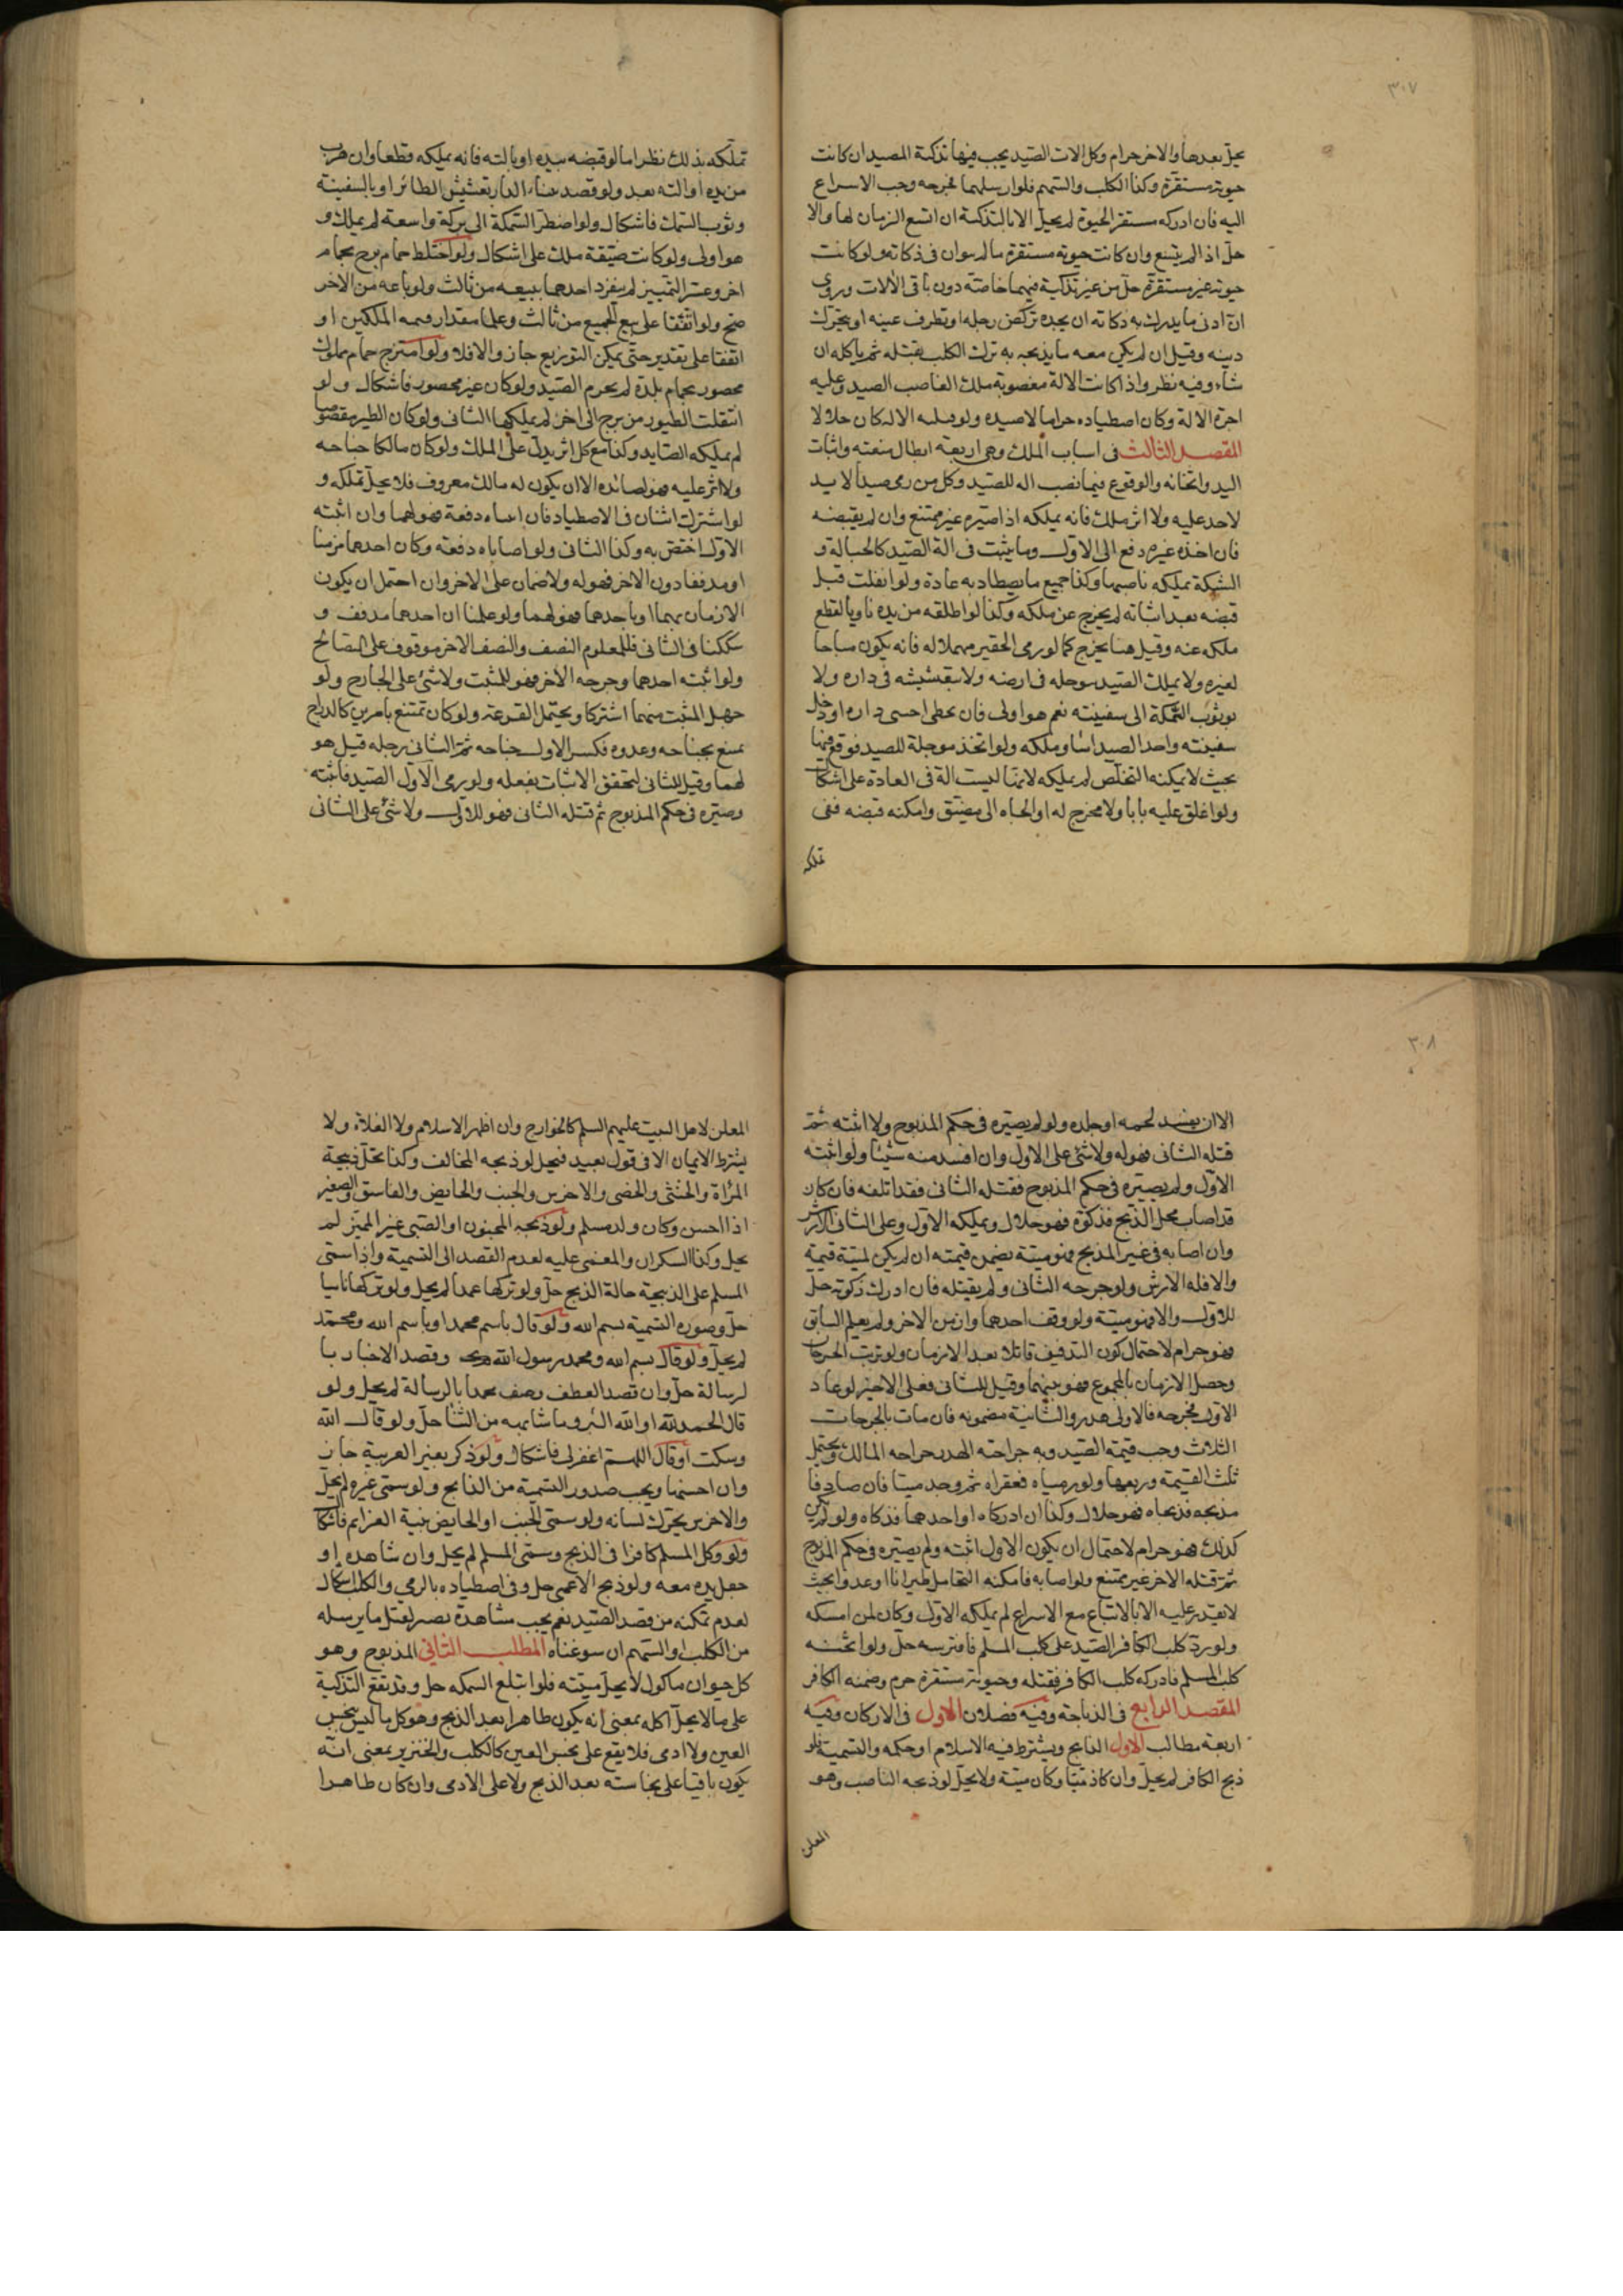 ٣٠٧
يحل بعدها والاخر حرام وكل الات الصيد يجب فيها تذكية المصيد ان كانت
حيوته مستقرة وكذا الكلب والسهم فلو ارسلهما فجرحه وجب الاسراع
اليه فان ادركه مستقر الحيوة لم يحل الا بالتذكية ان اتسع الزمان لها والا
حل اذا لم يتسع وان كانت حيوته مستقرة ما لم يتوان في ذكاته ولو كانت
حيوته غير مستقرة حل من غير تذكية فيهما خاصة دون باقي الالات وروى
ان ادنى ما يدرك به ذكاته ان يجده تركض رجله او تطرف عينه او يتحرك
ذنبه وقيل ان لم يكن معه ما يذبحه به ترك الكلب يقتله ثم ياكله ان
شاء وفيه نظر واذا كانت الالة مغصوبة ملك الغاصب الصيد وعليه
اجرة الالة وكان اصطياده حراما لا صيده ولو الاله كان حلالا
المقصد الثالث في اسباب الملك وهي اربعة ابطال منعته واثبات
اليد واثخانه والوقوع فيما نصب اله للصيد وكل من رمى صيدا لا يد
لاحد عليه ولا اثر ملك فانه يملكه اذا صيره غير ممتنع وان لم يقبضه
فان اخذه غيره دفع الى الاول وما يثبت في الة الصيد كالحبالة و
الشبكة يملكه ناصبها وكذا جميع ما يصطاد به عادة ولو انفلت قبل
قبضه بعد اثباته لم يخرج عن ملكه وكذا لو اطلقه من يده ناويا لقطع
ملكه عنه وقيل هنا يخرج كما لو رمى الحقير مهملا له فانه يكون مباحا
لغيره ولا يملك الصيد بتوحله في ارضه ولا بتعشيشه في داره ولا
بوثوب السمكة الى سفينته نعم هو اولى فان تخطى احد داره او دخل
سفينته واخذ الصيد اساء وملكه ولو اتخذ موحلة للصيد فوقع فيها
بحيث لا يمكنه التخلص لم يملكه لانها ليست الة في العادة على اشكال
ولو اغلق عليه بابا ولا مخرج له او الجاه الى مضيق وامكنه قبضه ففي
تملكه
تملكه بذلك نظر اما لو قبضه بيده او بالته فانه يملكه قطعا وان هرب
من يده او الته بعد ولو قصد ببناء الدار تعشيش الطائر او بالسفينة
وثوب السمك فاشكال ولو اضطر السمكة الى بركة واسعة لم يملك و
هو اولى ولو كانت ضيقة ملك على اشكال ولو اختلط حمام برج بحمام
اخر وعسر التمييز لم ينفرد احدهما ببيعه من ثالث ولو باعه من الاخر
صح ولو اتفقا على بيع الجميع من ثالث وعلما مقدار قيمة الملكين او
اتفقا على تقدير حتى يمكن التوزيع جاز والا فلا ولو امتزج حمام مملوك
محصور بحمام بلدة لم يحرم الصيد ولو كان غير محصور فاشكال ولو
انتقلت الطيور من برج الى اخر لم يملكها الثاني ولو كان الطير مقصوصا
لم يملكه الصايد وكذا مع كل اثر يدل على الملك ولو كان مالكا جناحه
ولا اثر عليه فهو لصائده الا ان يكون له مالك معروف فلا يحل تملكه و
لو اشترك اثنان في الاصطياد فان اثبتاه دفعة فهو لهما وان اثبته
الاول اختص به وكذا الثاني ولو اصاباه دفعة وكان احدهما مزمنا
او مدففا دون الاخر فهو له ولا ضمان على الاخر وان احتمل ان يكون
الازمان بهما او باحدهما فهو لهما ولو علمنا ان احدهما مدفف و
شككنا في الثاني فللمعلوم النصف والنصف الاخر موقوف على التصالح
ولو اثبته احدهما وجرحه الاخر فهو للمثبت ولا شئ على الجارح ولو
جهل المثبت منهما اشتركا ويحتمل القرعة ولو كان تمتنع بامرين كالدراج
يمتنع بجناحه وعدوه فكسر الاول جناحه ثم الثاني رجله قيل هو
لهما وقيل للثاني لتحقق الاثبات بفعله ولو رمى الاول الصيد فاثبته
وصيره في حكم المذبوح ثم قتله الثاني فهو للاول ولا شئ على الثاني
٣٠٨
الا ان يفسد لحمه او جلده ولو لم يصيره في حكم المذبوح ولا اثبته ثم
قتله الثاني فهو له ولا شئ على الاول وان افسد منه شيئا ولو اثبته
الاول ولم يصيره في حكم المذبوح فقتله الثاني فقد اتلفه فان كان
قد اصاب محل الذبح فذكوة فهو حلال ويملكه الاول وعلى الثاني الارش
وان اصابه في غير المذبح فهو ميتة يضمن قيمته ان لم يكن لميتة قيمة
والا فله الارش ولو جرحه الثاني ولم يقتله فان ادرك ذكوته حل
للاول والا فهو ميتة ولو وقف احدهما وازمن الاخر ولم يعلم السابق
فهو حرام لاحتمال كون التدفيف قاتلا بعد الازمان ولو ترتب الجرحان
وحصل الازمان بالمجموع فهو بينهما وقيل للثاني فعلى الاخير لو عاد
الاول فجرحه فالاولى هدر والثانية مضمونه فان مات بالجرحات
الثلاث وجب قيمة الصيد وبه جراحة الهدر وجراحه المالك ويحتمل
ثلث القيمة وربعها ولو رمياه فعقراه ثم وجد ميتا فان صادفا
مذبحه فذبحاه فهو حلال وكذا ان ادركاه او احدهما فذكاه ولو لم يكن
كذلك فهو حرام لاحتمال ان يكون الاول اثبته ولم يصيره في حكم المذبوح
ثم قتله الاخر غير ممتنع ولو اصابه فامكنه التحامل طيرانا او عدوا بحيث
لا يقدر عليه الا بالاتباع مع الاسراع لم يملكه الاول وكان لمن امسكه
ولو رد كلب الكافر الصيد على كلب المسلم فافترسه حل ولو اثخنه
كلب المسلم فادركه كلب الكافر فقتله وحيوته مستقرة حرم وضمنه الكافر
المقصد الرابع في الذباحة وفيه فصلان الاول في الاركان وفيه
اربعة مطالب الاول الذابح ويشترط فيه الاسلام او حكمه والتسمية فلو
ذبح الكافر لم يحل وان كان ذميا وكان ميتة ولا يحل لو ذبحه الناصب وهو
المعلن
المعلن لاهل البيت عليهم السلم كالخوارج وان اظهر الاسلام ولا الغلاة ولا
يشترط الايمان الا في قول بعيد فيحل لو ذبحه المخالف وكذا تحل ذبيحة
المرأة والخنثى والخصى والاخرس والجنب والحايض والفاسق والصغير
اذا احسن وكان ولد مسلم ولو ذبحه المجنون او الصبى غير المميز لم
يحل وكذا السكران والمغمى عليه لعدم القصد الى التسمية واذا سمى
المسلم على الذبيحة حالة الذبح حل ولو تركها عمدا لم يحل ولو تركها ناسيا
حل وصورة التسمية بسم الله ولو قال باسم محمد او باسم الله ومحمد
لم يحل ولو قال بسم الله ومحمد رسول الله وقصد الاخبار با
لرسالة حل وان قصد العطف وصف محمدا بالرسالة لم يحل ولو
قال الحمد لله او الله اكبر وما شابهه من الثنا حل ولو قال الله
وسكت او قال اللهم اغفر لى فاشكال ولو ذكر بغير العربية جاز
وان احسنها ويجب صدور التسمية من الذابح ولو سمى غيره لم يحل
والاخرس يحرك لسانه ولو سمى الجنب او الحايض بنية العزائم فاشكال
ولو وكل المسلم كافرا في الذبح وسمى المسلم لم يحل وان شاهده او
جعل يده معه ولو ذبح الاعمى حل وفي اصطياده بالرمي والكلب اشكال
لعدم تمكنه من قصد الصيد نعم يجب مشاهدة بصير لقتل ما يرسله
من الكلب او السهم ان سوغناه المطلب الثاني المذبوح وهو
كل حيوان ماكول لا يحل ميتته فلو ابتلع السمكه حل وقد تقع التذكية
على ما لا يحل اكله بمعنى انه يكون طاهرا بعد الذبح وهو كل ما ليس بنجس
العين ولا ادمى فلا يقع على نجس العين كالكلب والخنزير بمعنى انه
يكون باقيا على نجاسته بعد الذبح ولا على الادمى وان كان طاهرا